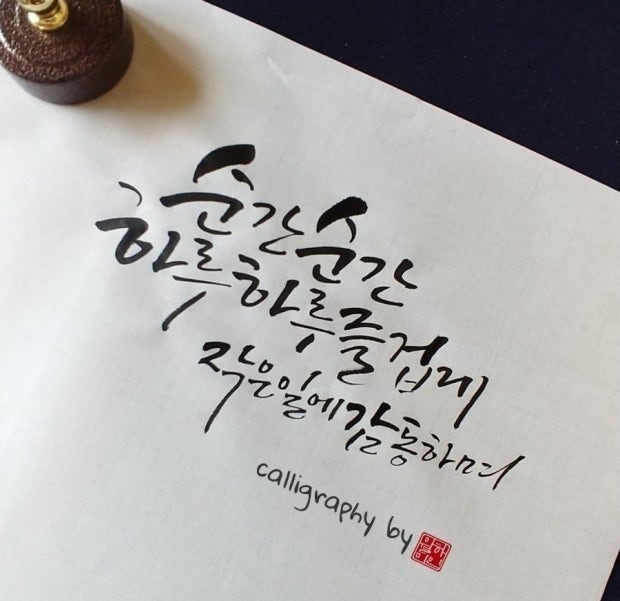 순간순간
하루하루즐겁게
작은일에감동하며
calligraphy by